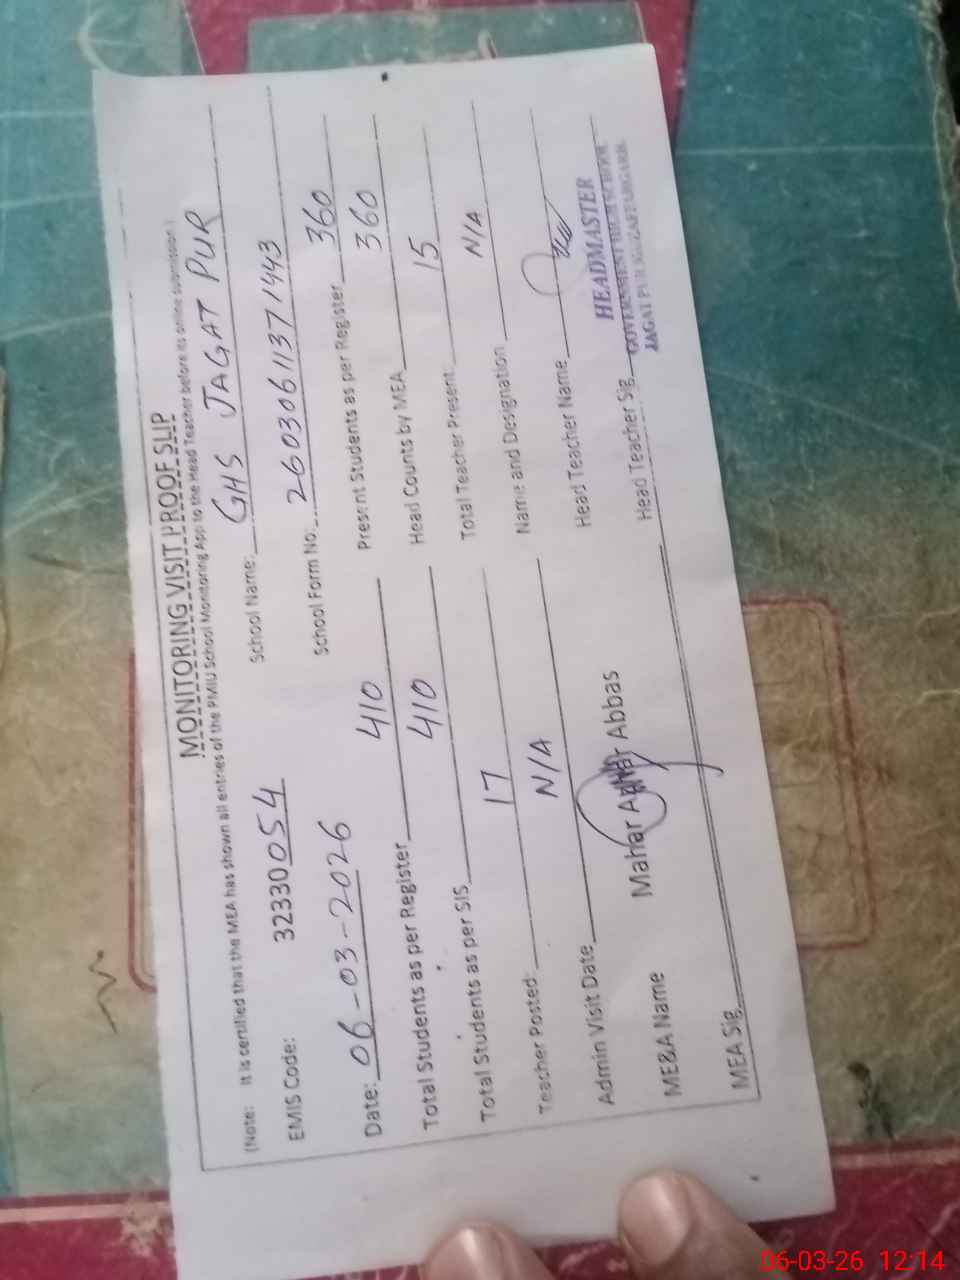 MONITORING VISIT PROOF SLIP
(Note: It is certified that the MEA has shown all entries of the PMIU School Monitoring App to the Head Teacher before its online submission)
EMIS Code: 32330054 School Name: GHS JAGAT PUR
Date: 06-03-2026 School Form No. 2603061137 1443
Total Students as per Register 410 Present Students as per Register 360
Total Students as per SIS 410 Head Counts by MEA 360
Teacher Posted: 17 Total Teacher Present: 15
Admin Visit Date N/A Name and Designation N/A
ME&A Name Mahar Abbas Head Teacher Name
MEA Sig. Head Teacher Sig.
HEADMASTER
GOVERNMENT HIGH SCHOOL
JAGAT PUR MUZAFFARGARH.
06-03-26 12:14